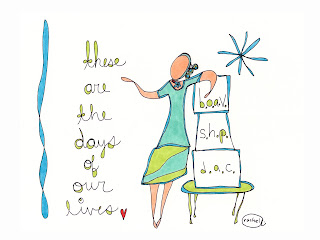 these
are
the
days
of
our
lives
b.a.v.
s.h.p.
d.a.c.
rachel